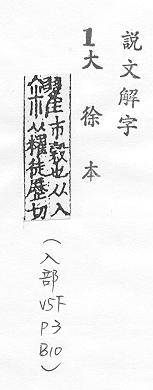 説文解字
1大徐本
糴市穀也从入
从𥼶徒歷切
(入部V5F P3 B10)